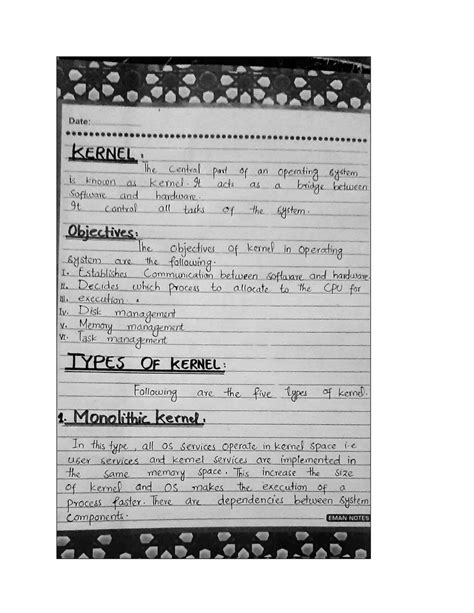 Date:
KERNEL:
The Central part of an operating system
is known as kernel. It acts as a bridge between
Software and hardware.
It control all tasks of the system.
Objectives:
The objectives of kernel in operating
system are the following.
I. Establishes Communication between software and hardware.
II. Decides which process to allocate to the CPU for
III. execution.
IV. Disk management
V. Memory management
VI. Task management
TYPES OF KERNEL:
Following are the five types of kernel.
1. Monolithic kernel.
In this type, all OS services operate in kernel space i.e
user services and kernel services are implemented in
the same memory space. This increase the size
of kernel and OS makes the execution of a
process faster. There are dependencies between system
Components.
EMAN NOTES